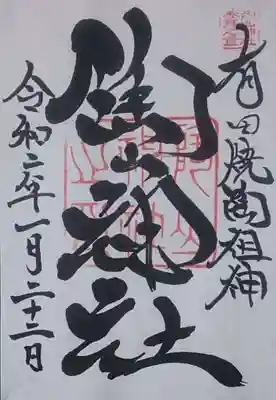 有田焼陶祖神
陶山神社
令和二年一月二十二日